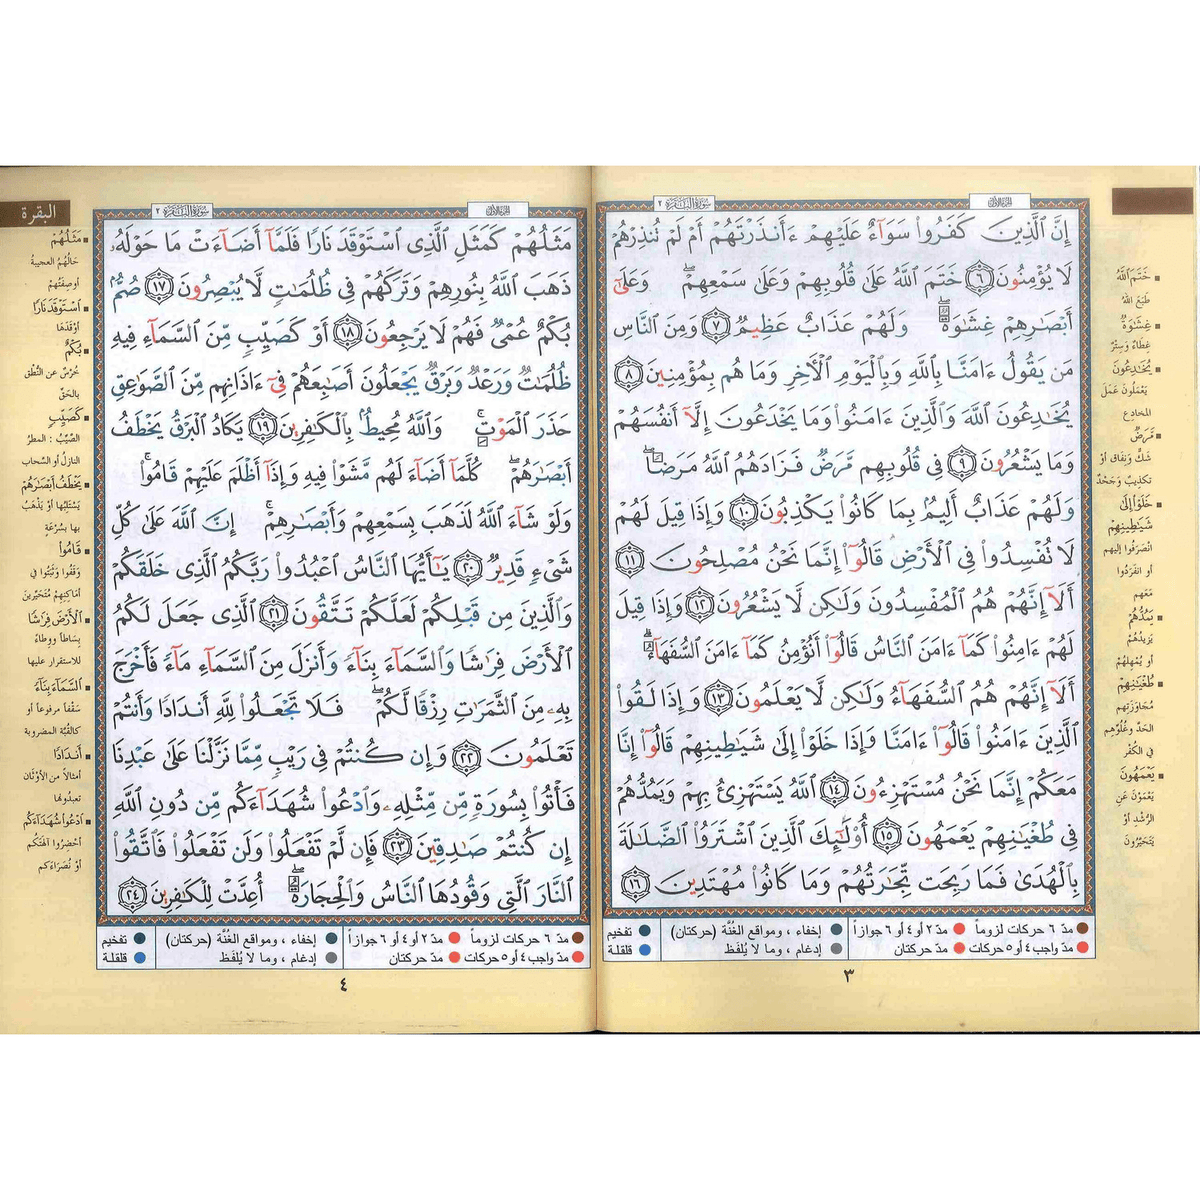 الجزء الأول
سورة البقرة ٢
إِنَّ ٱلَّذِينَ كَفَرُوا۟ سَوَآءٌ عَلَيْهِمْ ءَأَنذَرْتَهُمْ أَمْ لَمْ تُنذِرْهُمْ
لَا يُؤْمِنُونَ ٦ خَتَمَ ٱللَّهُ عَلَىٰ قُلُوبِهِمْ وَعَلَىٰ سَمْعِهِمْ ۖ وَعَلَىٰٓ
أَبْصَٰرِهِمْ غِشَٰوَةٌ ۖ وَلَهُمْ عَذَابٌ عَظِيمٌ ٧ وَمِنَ ٱلنَّاسِ
مَن يَقُولُ ءَامَنَّا بِٱللَّهِ وَبِٱلْيَوْمِ ٱلْأَخِرِ وَمَا هُم بِمُؤْمِنِينَ ٨
يُخَٰدِعُونَ ٱللَّهَ وَٱلَّذِينَ ءَامَنُوا۟ وَمَا يَخْدَعُونَ إِلَّآ أَنفُسَهُمْ
وَمَا يَشْعُرُونَ ٩ فِى قُلُوبِهِم مَّرَضٌ فَزَادَهُمُ ٱللَّهُ مَرَضًا ۖ
وَلَهُمْ عَذَابٌ أَلِيمٌۢ بِمَا كَانُوا۟ يَكْذِبُونَ ١٠ وَإِذَا قِيلَ لَهُمْ
لَا تُفْسِدُوا۟ فِى ٱلْأَرْضِ قَالُوٓا۟ إِنَّمَا نَحْنُ مُصْلِحُونَ ١١
أَلَآ إِنَّهُمْ هُمُ ٱلْمُفْسِدُونَ وَلَٰكِن لَّا يَشْعُرُونَ ١٢ وَإِذَا قِيلَ
لَهُمْ ءَامِنُوا۟ كَمَآ ءَامَنَ ٱلنَّاسُ قَالُوٓا۟ أَنُؤْمِنُ كَمَآ ءَامَنَ ٱلسُّفَهَآءُ ۗ
أَلَآ إِنَّهُمْ هُمُ ٱلسُّفَهَآءُ وَلَٰكِن لَّا يَعْلَمُونَ ١٣ وَإِذَا لَقُوا۟
ٱلَّذِينَ ءَامَنُوا۟ قَالُوٓا۟ ءَامَنَّا وَإِذَا خَلَوْا۟ إِلَىٰ شَيَٰطِينِهِمْ قَالُوٓا۟ إِنَّا
مَعَكُمْ إِنَّمَا نَحْنُ مُسْتَهْزِءُونَ ١٤ ٱللَّهُ يَسْتَهْزِئُ بِهِمْ وَيَمُدُّهُمْ
فِى طُغْيَٰنِهِمْ يَعْمَهُونَ ١٥ أُو۟لَٰٓئِكَ ٱلَّذِينَ ٱشْتَرَوُا۟ ٱلضَّلَٰلَةَ
بِٱلْهُدَىٰ فَمَا رَبِحَت تِّجَٰرَتُهُمْ وَمَا كَانُوا۟ مُهْتَدِينَ ١٦
خَتَمَ ٱللَّهُ
طَبَعَ اللهُ
غِشَٰوَةٌ
غِطَاءٌ وَسِتْرٌ
يُخَٰدِعُونَ
يَعْمَلُونَ عَمَلَ
المُخَادِعِ
مَّرَضٌ
شَكٌّ وَنِفَاق أوْ
تَكْذِيبٌ وَجَحْدٌ
خَلَوْا۟ إِلَىٰ
شَيَٰطِينِهِمْ
انْصَرَفُوا إليهم
أو انفَرَدُوا
مَعَهم
يَمُدُّهُمْ
يَزِيدُهُمْ
أو يُمْهِلُهُمْ
طُغْيَٰنِهِمْ
مُجَاوَزَتِهم
الحَدَّ وغُلُوِّهِم
فِي الكُفْرِ
يَعْمَهُونَ
يَعْمَوْنَ عَنِ
الرُّشْدِ أوْ
يَتَحَيَّرُونَ
مدّ ٦ حركات لزوماً
مدّ ٢ أو ٤ أو ٦ جوازاً
إخفاء ، ومواقع الغُنَّة (حركتان)
تفخيم
مدّ واجب ٤ أو ٥ حركات
مدّ حركتان
إدغام ، وما لا يُلفَظ
قلقلة
٣
الجزء الأول
سورة البقرة ٢
البقرة
مَثَلُهُمْ كَمَثَلِ ٱلَّذِى ٱسْتَوْقَدَ نَارًا فَلَمَّآ أَضَآءَتْ مَا حَوْلَهُۥ
ذَهَبَ ٱللَّهُ بِنُورِهِمْ وَتَرَكَهُمْ فِى ظُلُمَٰتٍ لَّا يُبْصِرُونَ ١٧ صُمٌّۢ
بُكْمٌ عُمْىٌ فَهُمْ لَا يَرْجِعُونَ ١٨ أَوْ كَصَيِّبٍ مِّنَ ٱلسَّمَآءِ فِيهِ
ظُلُمَٰتٌ وَرَعْدٌ وَبَرْقٌ يَجْعَلُونَ أَصَٰبِعَهُمْ فِىٓ ءَاذَانِهِم مِّنَ ٱلصَّوَٰعِقِ
حَذَرَ ٱلْمَوْتِ ۚ وَٱللَّهُ مُحِيطٌۢ بِٱلْكَٰفِرِينَ ١٩ يَكَادُ ٱلْبَرْقُ يَخْطَفُ
أَبْصَٰرَهُمْ ۖ كُلَّمَآ أَضَآءَ لَهُم مَّشَوْا۟ فِيهِ وَإِذَآ أَظْلَمَ عَلَيْهِمْ قَامُوا۟ ۚ
وَلَوْ شَآءَ ٱللَّهُ لَذَهَبَ بِسَمْعِهِمْ وَأَبْصَٰرِهِمْ ۚ إِنَّ ٱللَّهَ عَلَىٰ كُلِّ
شَىْءٍ قَدِيرٌ ٢٠ يَٰٓأَيُّهَا ٱلنَّاسُ ٱعْبُدُوا۟ رَبَّكُمُ ٱلَّذِى خَلَقَكُمْ
وَٱلَّذِينَ مِن قَبْلِكُمْ لَعَلَّكُمْ تَتَّقُونَ ٢١ ٱلَّذِى جَعَلَ لَكُمُ
ٱلْأَرْضَ فِرَٰشًا وَٱلسَّمَآءَ بِنَآءً وَأَنزَلَ مِنَ ٱلسَّمَآءِ مَآءً فَأَخْرَجَ
بِهِۦ مِنَ ٱلثَّمَرَٰتِ رِزْقًا لَّكُمْ ۖ فَلَا تَجْعَلُوا۟ لِلَّهِ أَندَادًا وَأَنتُمْ
تَعْلَمُونَ ٢٢ وَإِن كُنتُمْ فِى رَيْبٍ مِّمَّا نَزَّلْنَا عَلَىٰ عَبْدِنَا
فَأْتُوا۟ بِسُورَةٍ مِّن مِّثْلِهِۦ وَٱدْعُوا۟ شُهَدَآءَكُم مِّن دُونِ ٱللَّهِ
إِن كُنتُمْ صَٰدِقِينَ ٢٣ فَإِن لَّمْ تَفْعَلُوا۟ وَلَن تَفْعَلُوا۟ فَٱتَّقُوا۟
ٱلنَّارَ ٱلَّتِى وَقُودُهَا ٱلنَّاسُ وَٱلْحِجَارَةُ ۖ أُعِدَّتْ لِلْكَٰفِرِينَ ٢٤
مَثَلُهُمْ
حَالُهُمُ العجيبة
أو صِفَتُهُمْ
ٱسْتَوْقَدَ نَارًا
أَوْقَدَهَا
بُكْمٌ
خُرْسٌ عن النُّطقِ
بالحَقِّ
كَصَيِّبٍ
الصَّيِّبُ : المطرُ
النازلُ أو السَّحاب
يَخْطَفُ أَبْصَٰرَهُمْ
يَسْتَلِبُها أوْ يَذْهَبُ
بها بسُرْعَةٍ
قَامُوا۟
وَقَفُوا وَثَبَتُوا فِي
أمَاكِنِهِمْ مُتَحَيِّرينَ
ٱلْأَرْضَ فِرَٰشًا
بِسَاطاً ووطاءً
للاستقرار عليها
ٱلسَّمَآءَ بِنَآءً
سَقْفاً مرفوعاً أو
كالقُبَّة المضروبة
أَندَادًا
أمثالاً من الأوْثَان
تعبدُونها
ٱدْعُوا۟ شُهَدَآءَكُم
أحْضِرُوا آلِهَتَكُم
أوْ نُصَرَاءَكم
مدّ ٦ حركات لزوماً
مدّ ٢ أو ٤ أو ٦ جوازاً
إخفاء ، ومواقع الغُنَّة (حركتان)
تفخيم
مدّ واجب ٤ أو ٥ حركات
مدّ حركتان
إدغام ، وما لا يُلفَظ
قلقلة
٤